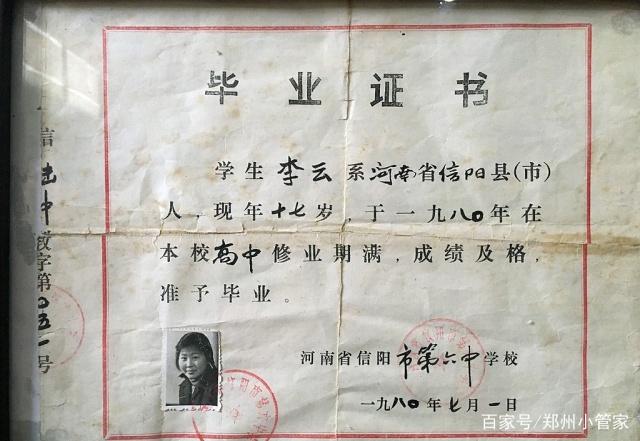 毕业证书
学生李云系河南省信阳县(市)
人,现年十七岁,于一九八〇年在
本校高中修业期满,成绩及格,
准予毕业。
河南省信阳市第六中学校
一九八〇年七月一日
信陆中教字第〇五一号
百家号/郑州小管家